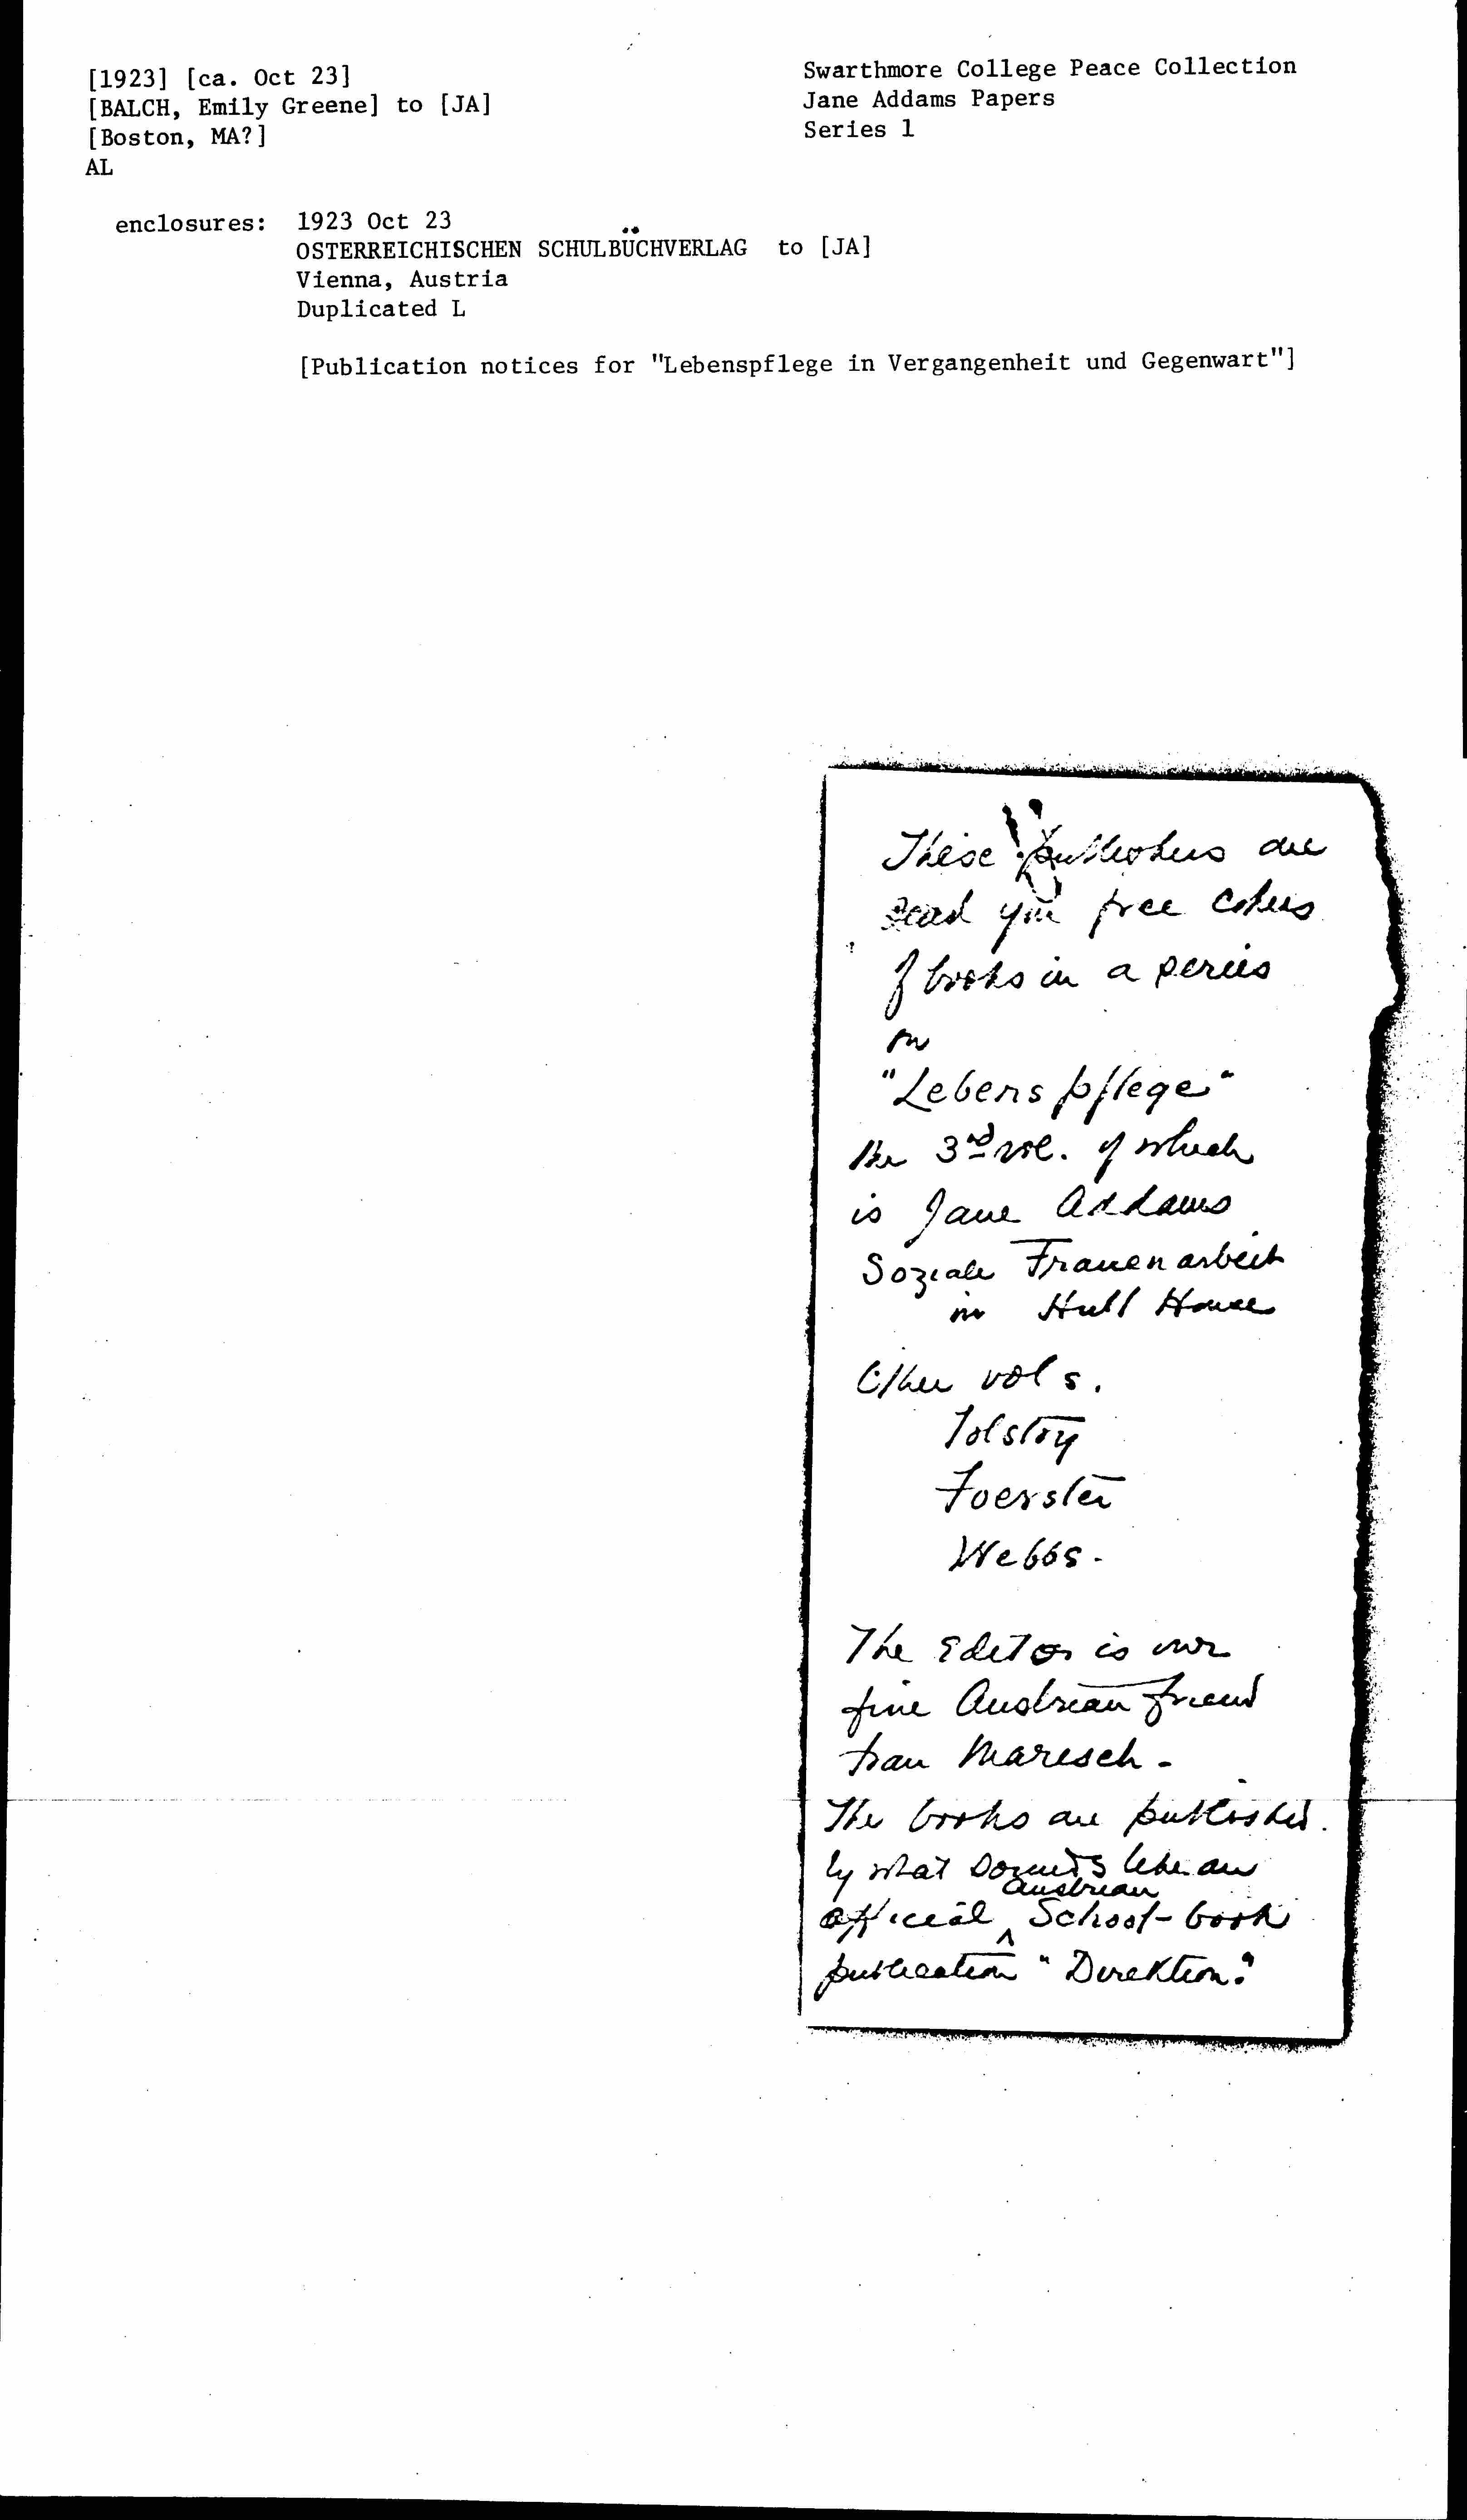 [1923] [ca. Oct 23]
[BALCH, Emily Greene] to [JA]
[Boston, MA?]
AL
Swarthmore College Peace Collection
Jane Addams Papers
Series 1
enclosures: 1923 Oct 23
OSTERREICHISCHEN SCHULBÜCHVERLAG to [JA]
Vienna, Austria
Duplicated L
[Publication notices for "Lebenspflege in Vergangenheit und Gegenwart"]
These publishers are
send you free copies
of books in a series
on
"Lebenspflege"
the 3rd vol. of which
is Jane Addams
Soziale Frauenarbeit
in Hull House
Other vols.
Tolstoy
Foerster
Webbs.
The Editor is our
fine Austrian friend
Frau Maresch -
The books are published
by what sounds like an
official ^ Austrian School-book
publication "Direktion."